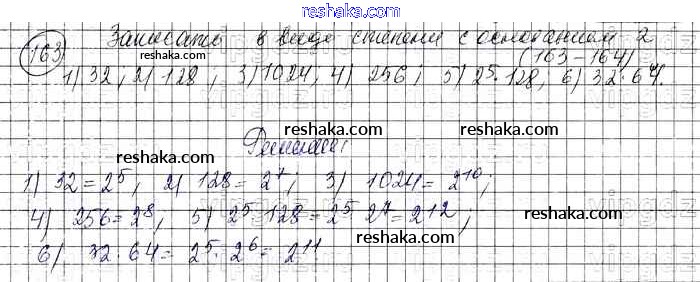 reshaka.com
163 Записать в виде степени с основанием 2
(163-164)
1) 32, 2) 128, 3) 1024, 4) 256; 5) 2⁵·128, 6) 32·64.
reshaka.com reshaka.com
Решение:
reshaka.com reshaka.com
1) 32=2⁵, 2) 128=2⁷; 3) 1024=2¹⁰;
4) 256=2⁸, 5) 2⁵·128=2⁵·2⁷=2¹²;
reshaka.com
6) 32·64=2⁵·2⁶=2¹¹
reshaka.com
reshaka.com